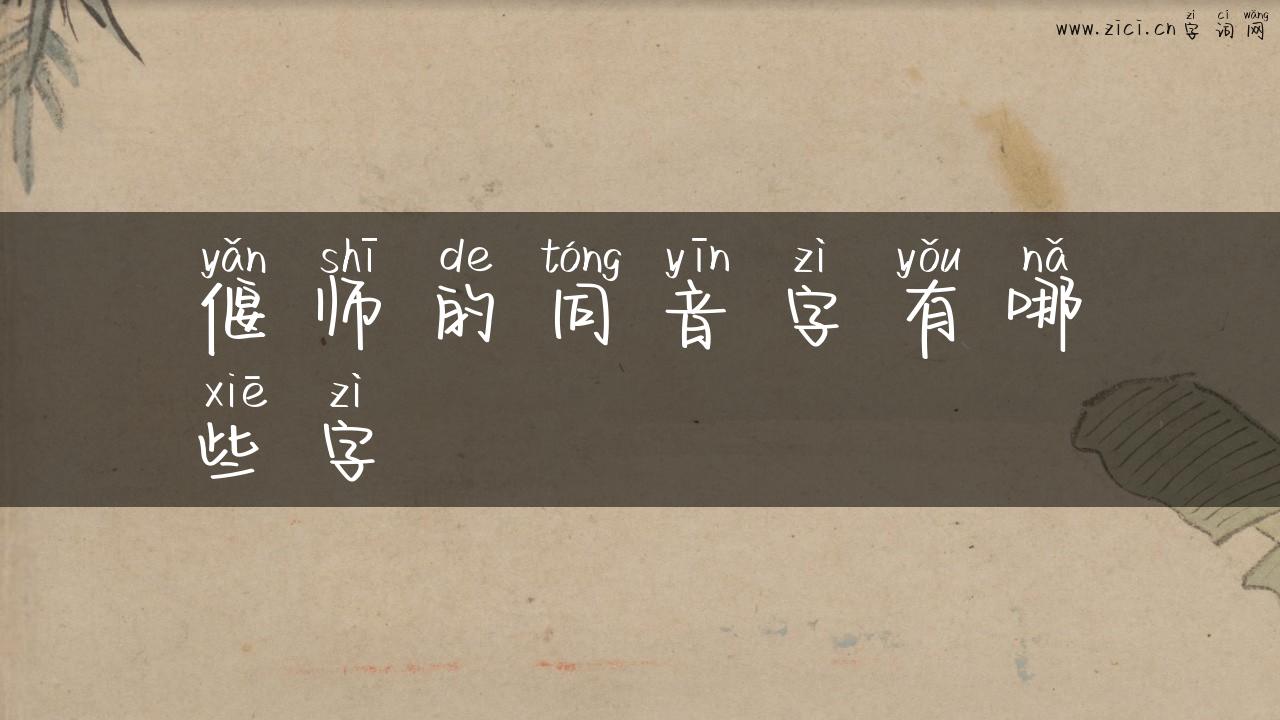 zì cí wǎng
www.zici.cn 字词网
yǎn shī de tóng yīn zì yǒu nǎ
偃师的同音字有哪
xiē zì
些字